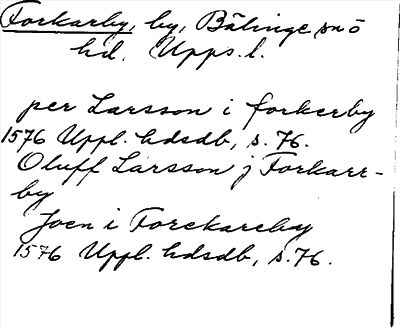 Forkarby, by, Bälinge sn ö
hd. Upps. l.
per Larsson i forkerby
1576 Uppl. hdsdb, s. 76.
Oluff Larsson j Forkarr-
by
Joen i Forekareby
1576 Uppl. hdsdb, s. 76.